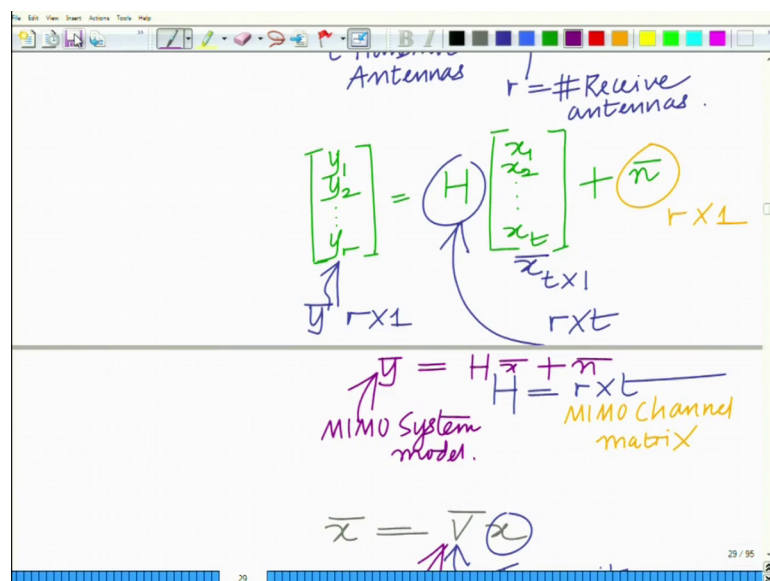 File Edit View Insert Actions Tools Help
B I
Antennas
r = #Receive
antennas.
y1
y2
⋮
yr
=
H
x1
x2
⋮
xt
+ n̅
r×1
x̅ t×1
y̅ r×1
r×t
y̅ = H x̅ + n̅
H = r×t
MIMO System
model.
MIMO Channel
matrix
x̅ = V̅ x
29 / 95
29